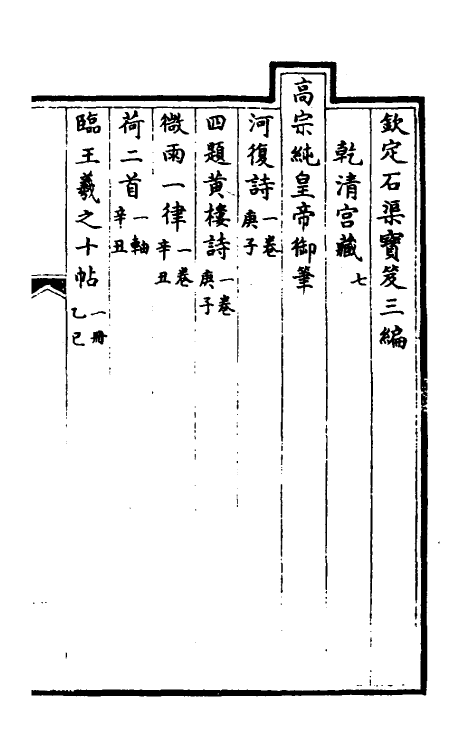 欽定石渠寶笈三編
乾清宮藏七
高宗純皇帝御筆
河復詩一卷庚子
四題黄樓詩一卷庚子
微雨一律一卷辛丑
荷二首一軸辛丑
臨王羲之十帖一冊乙巳